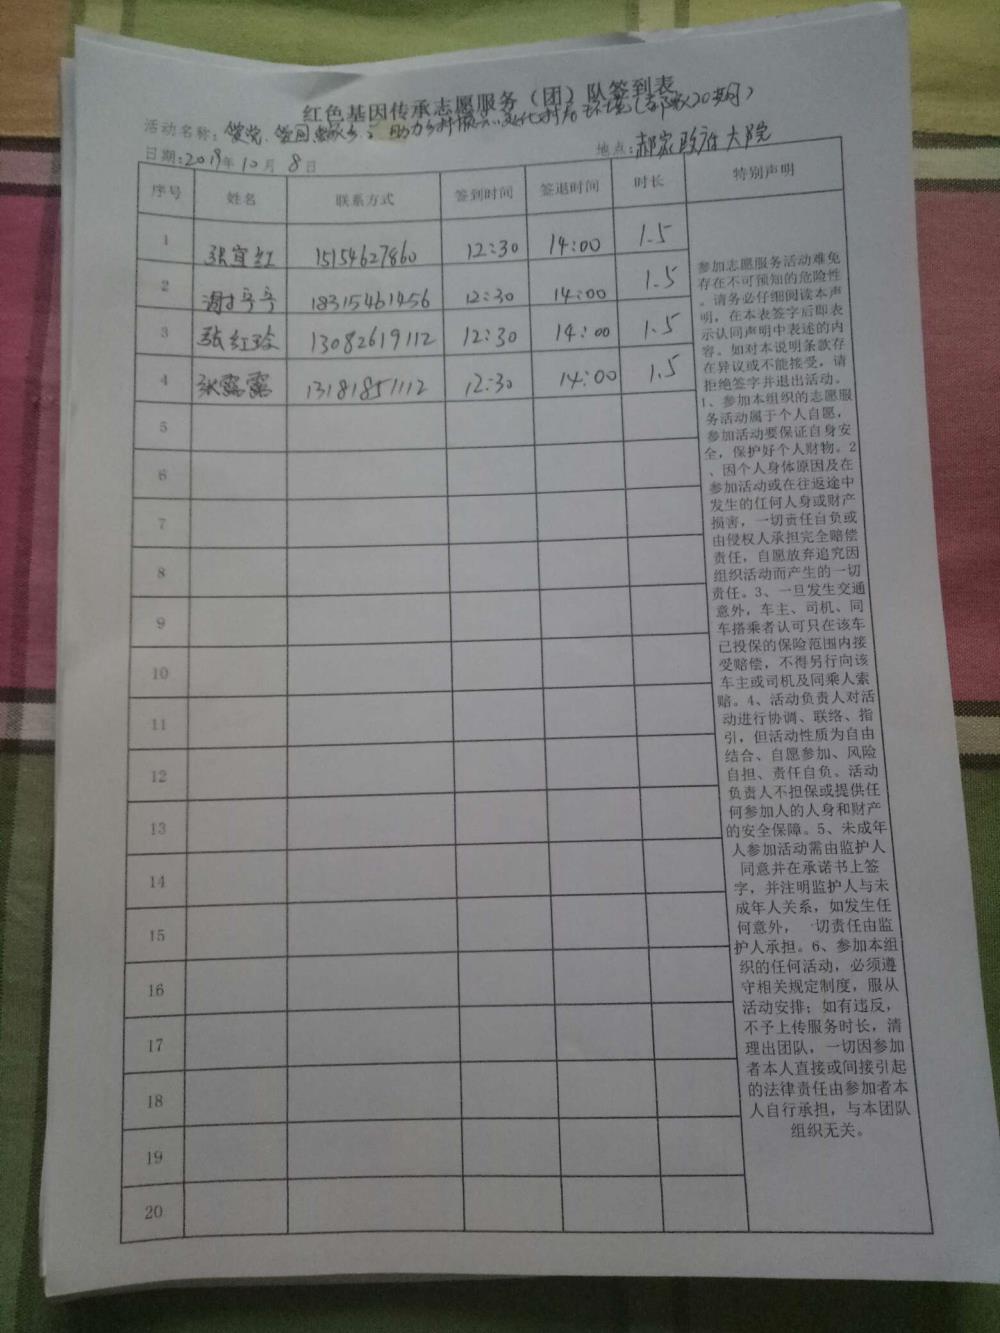 红色基因传承志愿服务（团）队签到表
活动名称：爱党、爱国爱家乡；助力乡村振兴 美化村居环境（郝家20期）
日期：2019年10月8日 地点：郝家政府大院
序号 姓名 联系方式 签到时间 签退时间 时长 特别声明
1 张宜红 15154627860 12:30 14:00 1.5
2 谢宁宁 18315461456 12:30 14:00 1.5
3 张红玲 13082619112 12:30 14:00 1.5
4 张露露 13181851112 12:30 14:00 1.5
5
6
7
8
9
10
11
12
13
14
15
16
17
18
19
20
参加志愿服务活动难免
存在不可预知的危险性
。请务必仔细阅读本声
明，在本表签字后即表
示认同声明中表述的内
容。如对本说明条款存
在异议或不能接受，请
拒绝签字并退出活动。
1、参加本组织的志愿服
务活动属于个人自愿，
参加活动要保证自身安
全，保护好个人财物。2
、因个人身体原因及在
参加活动或在往返途中
发生的任何人身或财产
损害，一切责任自负或
由侵权人承担完全赔偿
责任，自愿放弃追究因
组织活动而产生的一切
责任。3、一旦发生交通
意外，车主、司机、同
车搭乘者认可只在该车
已投保的保险范围内接
受赔偿，不得另行向该
车主或司机及同乘人索
赔。4、活动负责人对活
动进行协调、联络、指
引，但活动性质为自由
结合、自愿参加、风险
自担、责任自负。活动
负责人不担保或提供任
何参加人的人身和财产
的安全保障。5、未成年
人参加活动需由监护人
同意并在承诺书上签
字，并注明监护人与未
成年人关系，如发生任
何意外，一切责任由监
护人承担。6、参加本组
织的任何活动，必须遵
守相关规定制度，服从
活动安排；如有违反，
不予上传服务时长，清
理出团队，一切因参加
者本人直接或间接引起
的法律责任由参加者本
人自行承担，与本团队
组织无关。